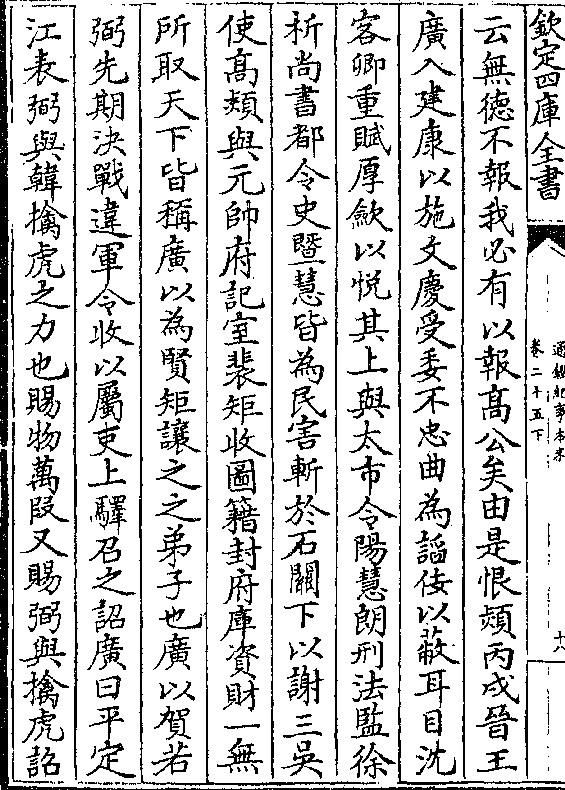 欽定四庫全書
通鑑紀事本末
卷二十五下
十六
云無德不報我必有以報高公矣由是恨熲丙戌晉王
廣入建康以施文慶受委不忠曲為謟佞以蔽耳目沈
客卿重賦厚歛以悦其上與太市令陽慧朗刑法監徐
析尚書都令史暨慧皆為民害斬於石闕下以謝三吳
使高熲與元帥府記室裴矩收圖籍封府庫資財一無
所取天下皆稱廣以為賢矩讓之之弟子也廣以賀若
弼先期決戰違軍令收以屬吏上驛召之詔廣曰平定
江表弼與韓擒虎之力也賜物萬段又賜弼與擒虎詔